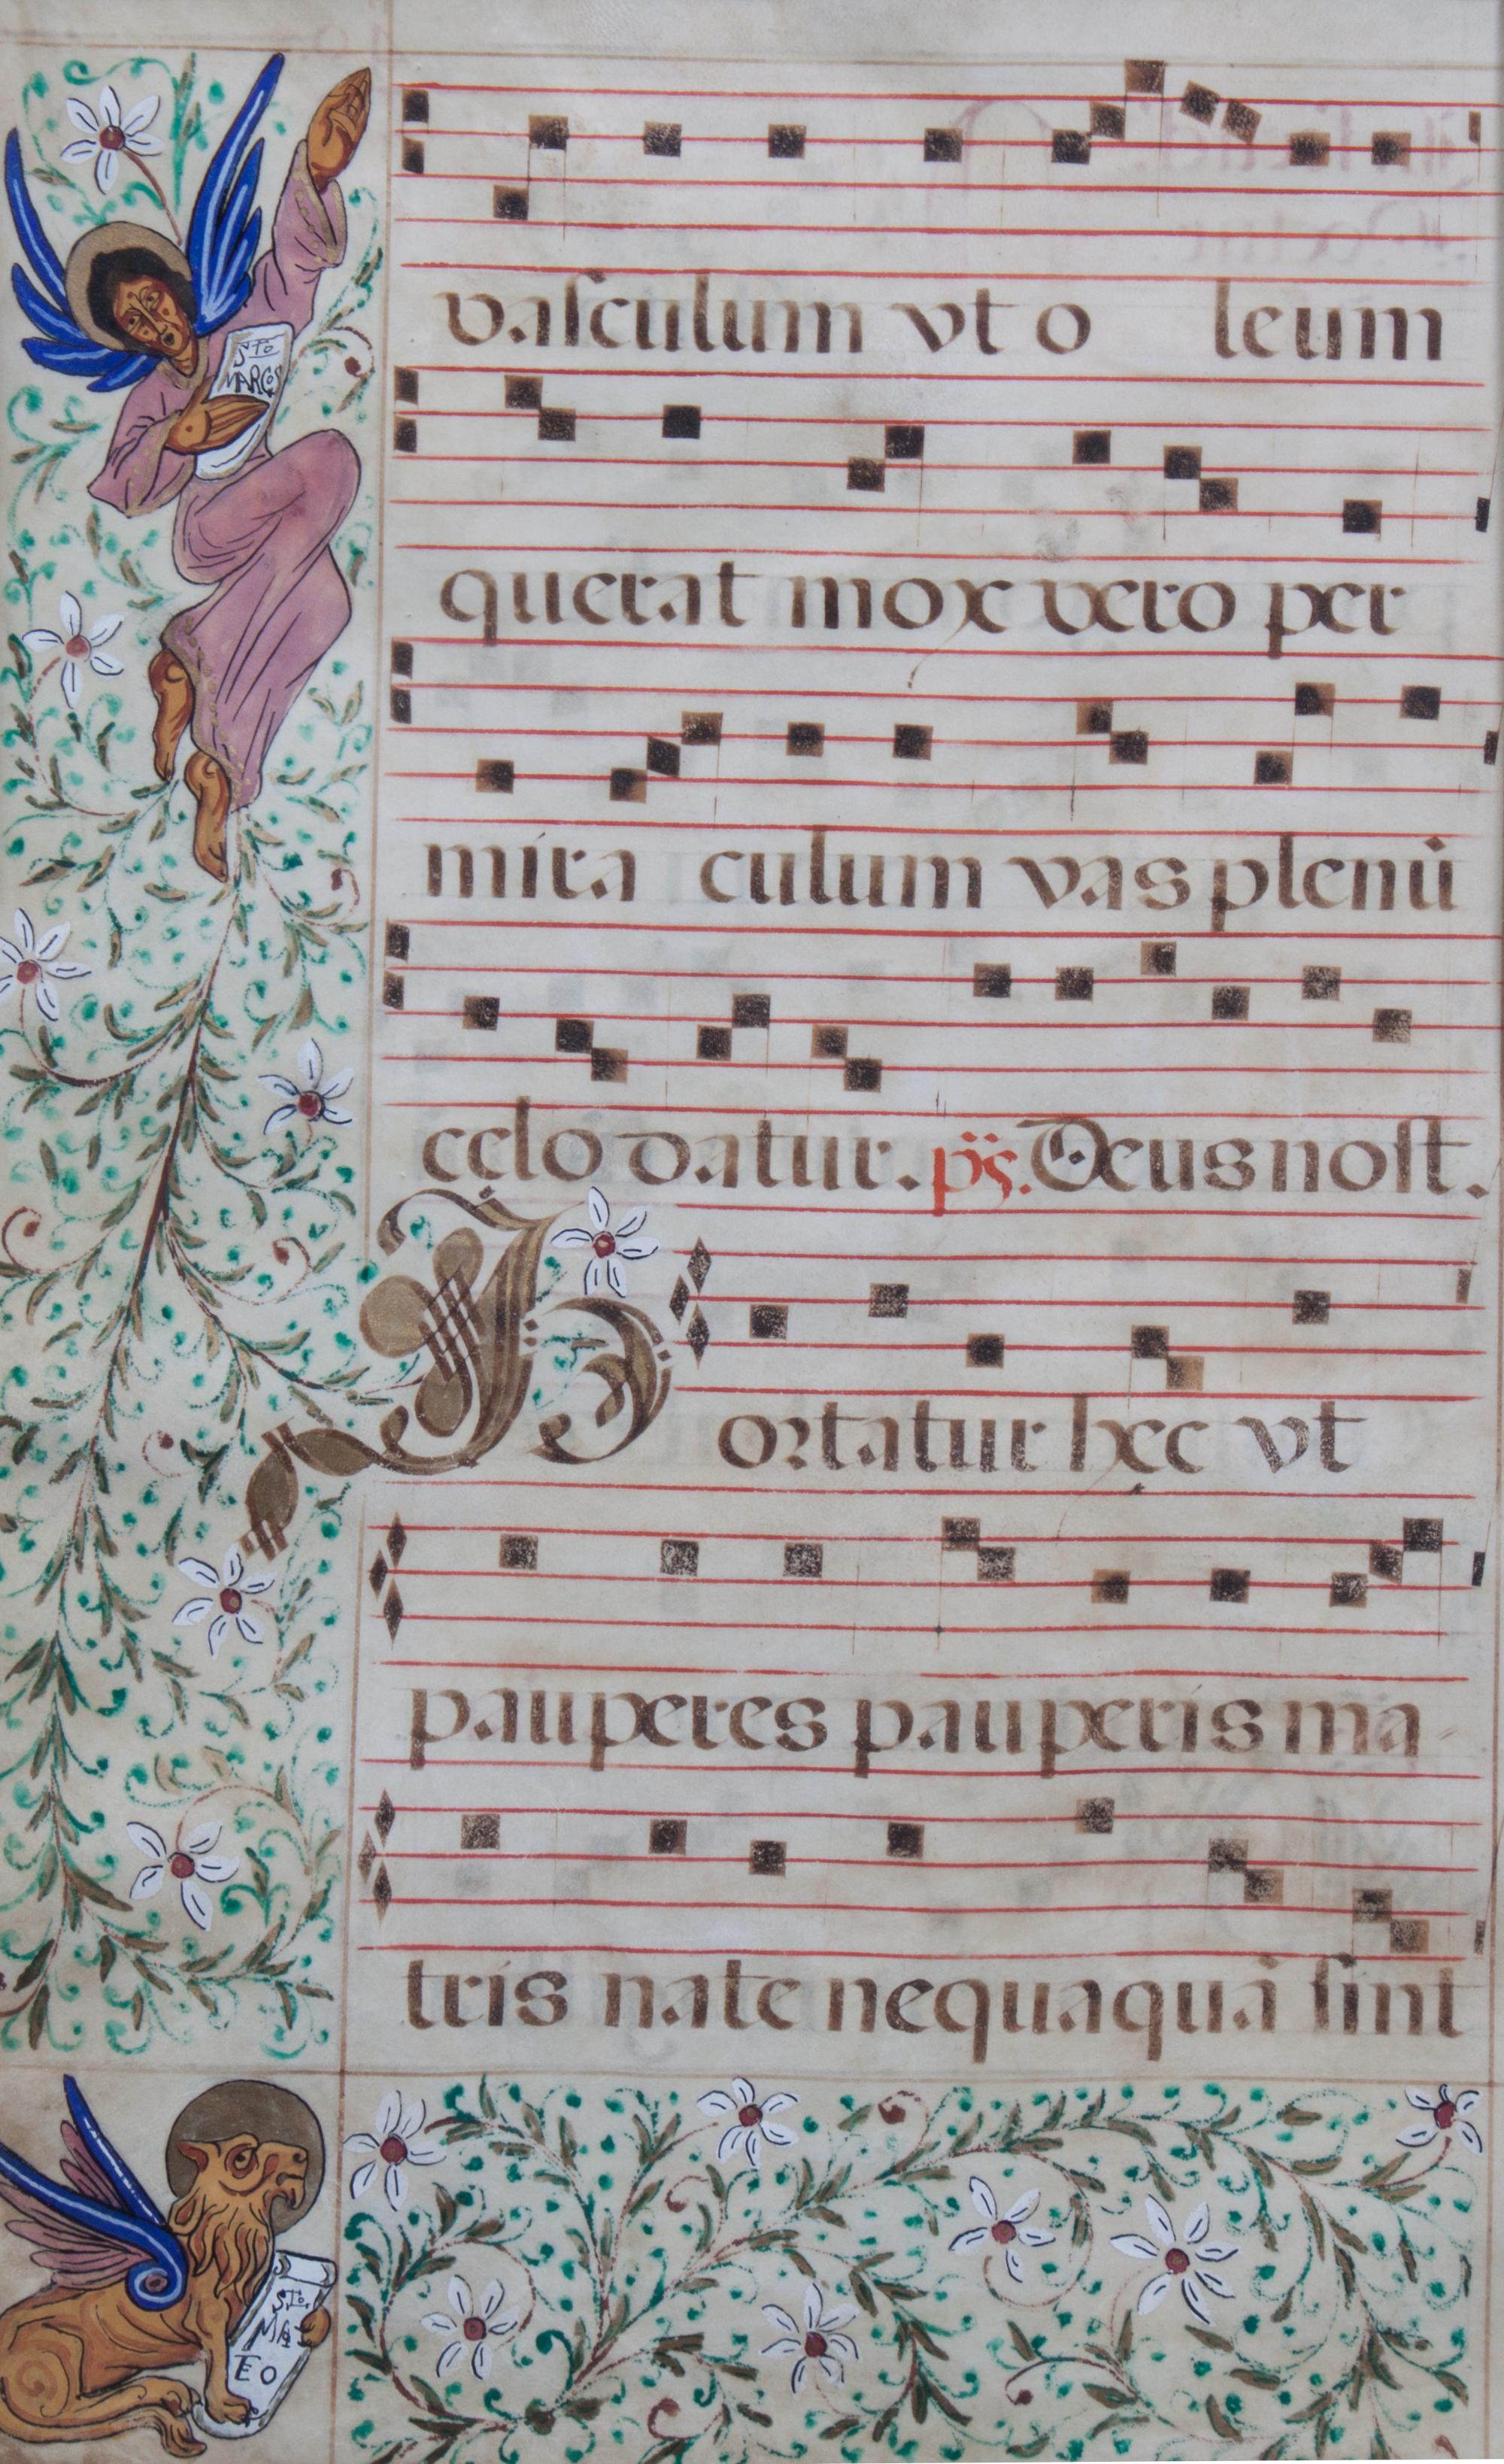 vaſculum vt o leum
Sto
MARCOS
querat mox vero per
mira culum vas plenū
cęlo datur. ps. Deus noſt.
Hortatur hęc vt
pauperes pauperis ma-
tris nate nequaquā ſint
STo.
MAT
EO